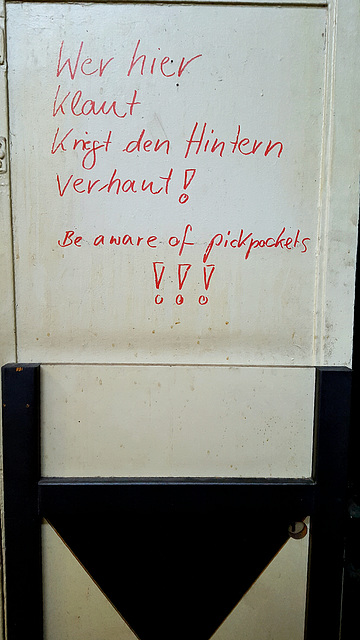 Wer hier
klaut
Kriegt den Hintern
verhaut!
Be aware of pickpockets
!!!